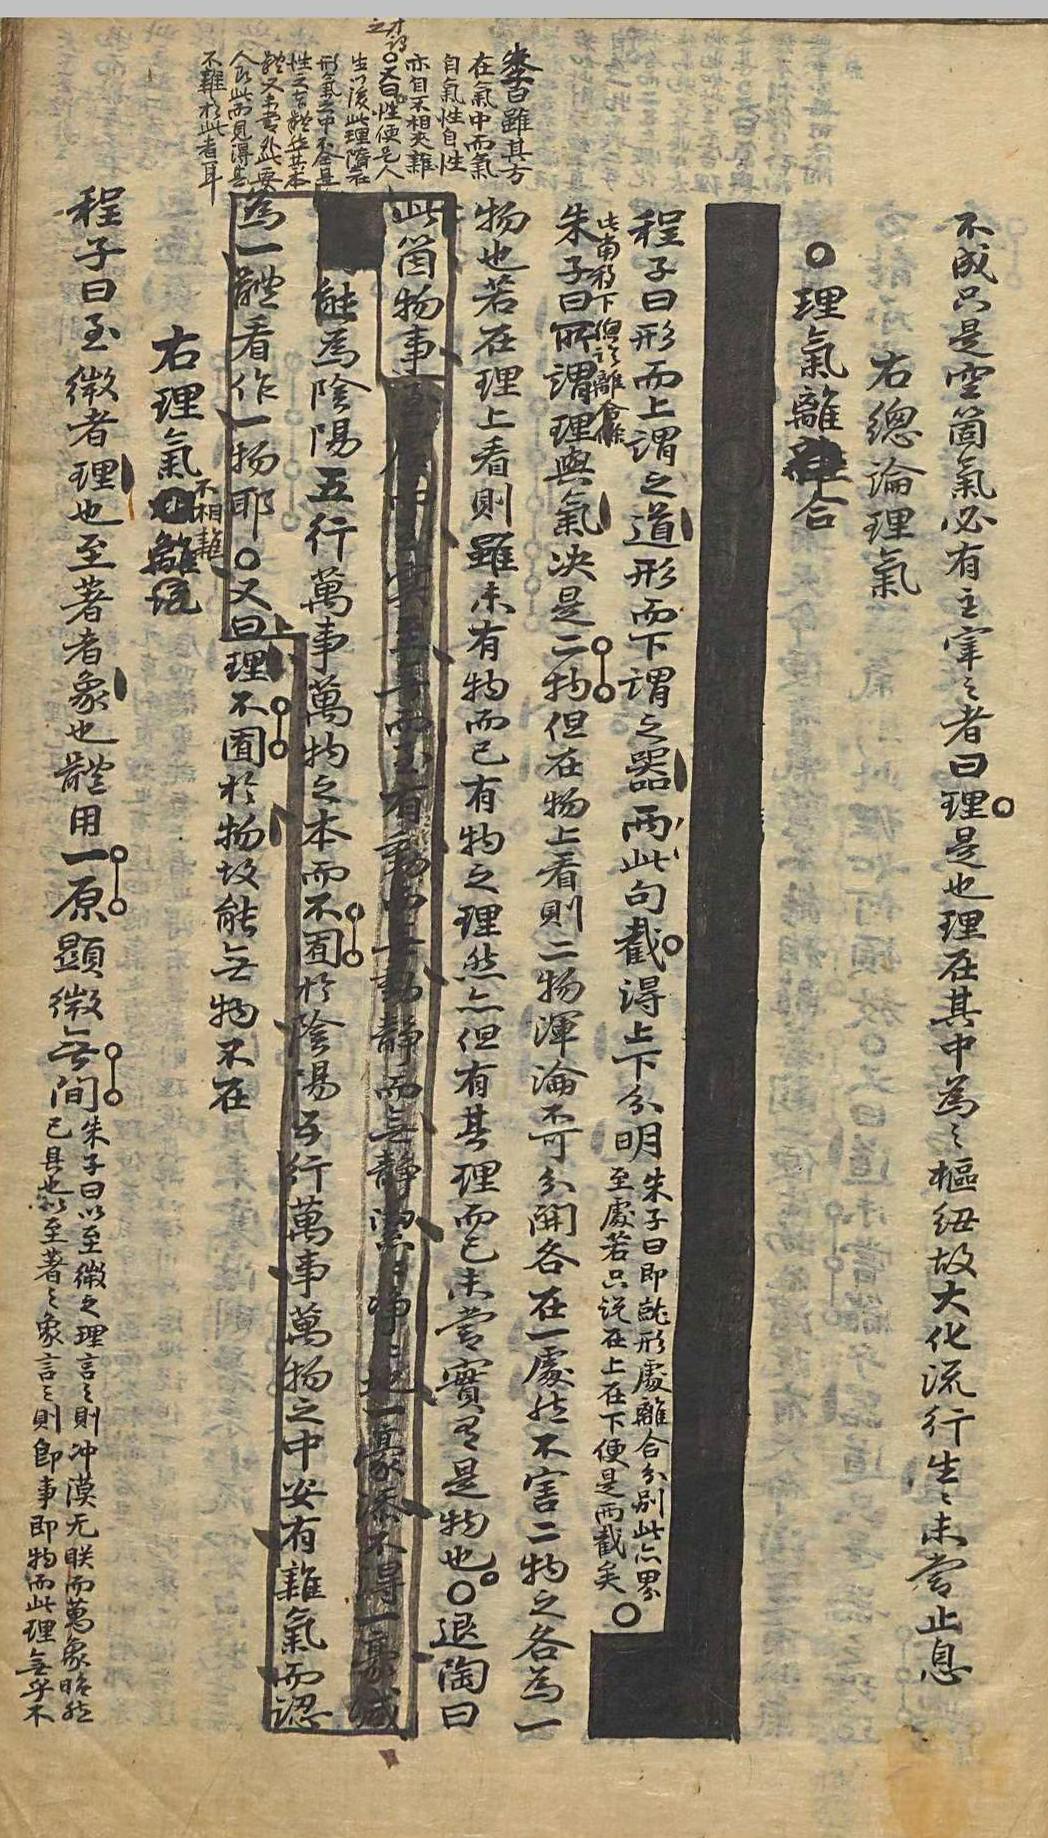 不成只是空箇氣必有主宰〻者曰理是也理在其中為〻樞紐故大化流行生〻未嘗止息
右總論理氣
○理氣離合
程子曰形而上謂之道形而下謂之器而此句截得上下分明
朱子曰即就形處離合分別此亦界
至處若只說在上在下便是兩截矣○
此南移下
朱子曰所謂理與氣决是二物但在物上看則二物渾淪不可分開各在一處然不害二物之各為一
物也若在理上看則雖未有物而已有物之理然亦但有其理而已未嘗實有是物也○退陶曰
朱子曰雖其方
在氣中而氣
自氣性自性
亦自不相夾雜
○又曰性便是人
生以後此理墮在
形氣之中不全是
人即此而見得其
不雜於此者耳
此箇物事至虛而至實至無而至有動而無動靜而無靜潔〻淨〻地一毫添不得一毫減
能為陰陽五行萬事萬物之本而不囿於陰陽五行萬事萬物之中安有雜氣而認
為一體看作一物耶○又曰理不囿於物故能無物不在
右理氣不相離
程子曰至微者理也至著者象也體用一原顯微無間
朱子曰以至微之理言之則冲漠无朕而萬象昭然
已具也以至著之象言之則即事即物而此理無乎不